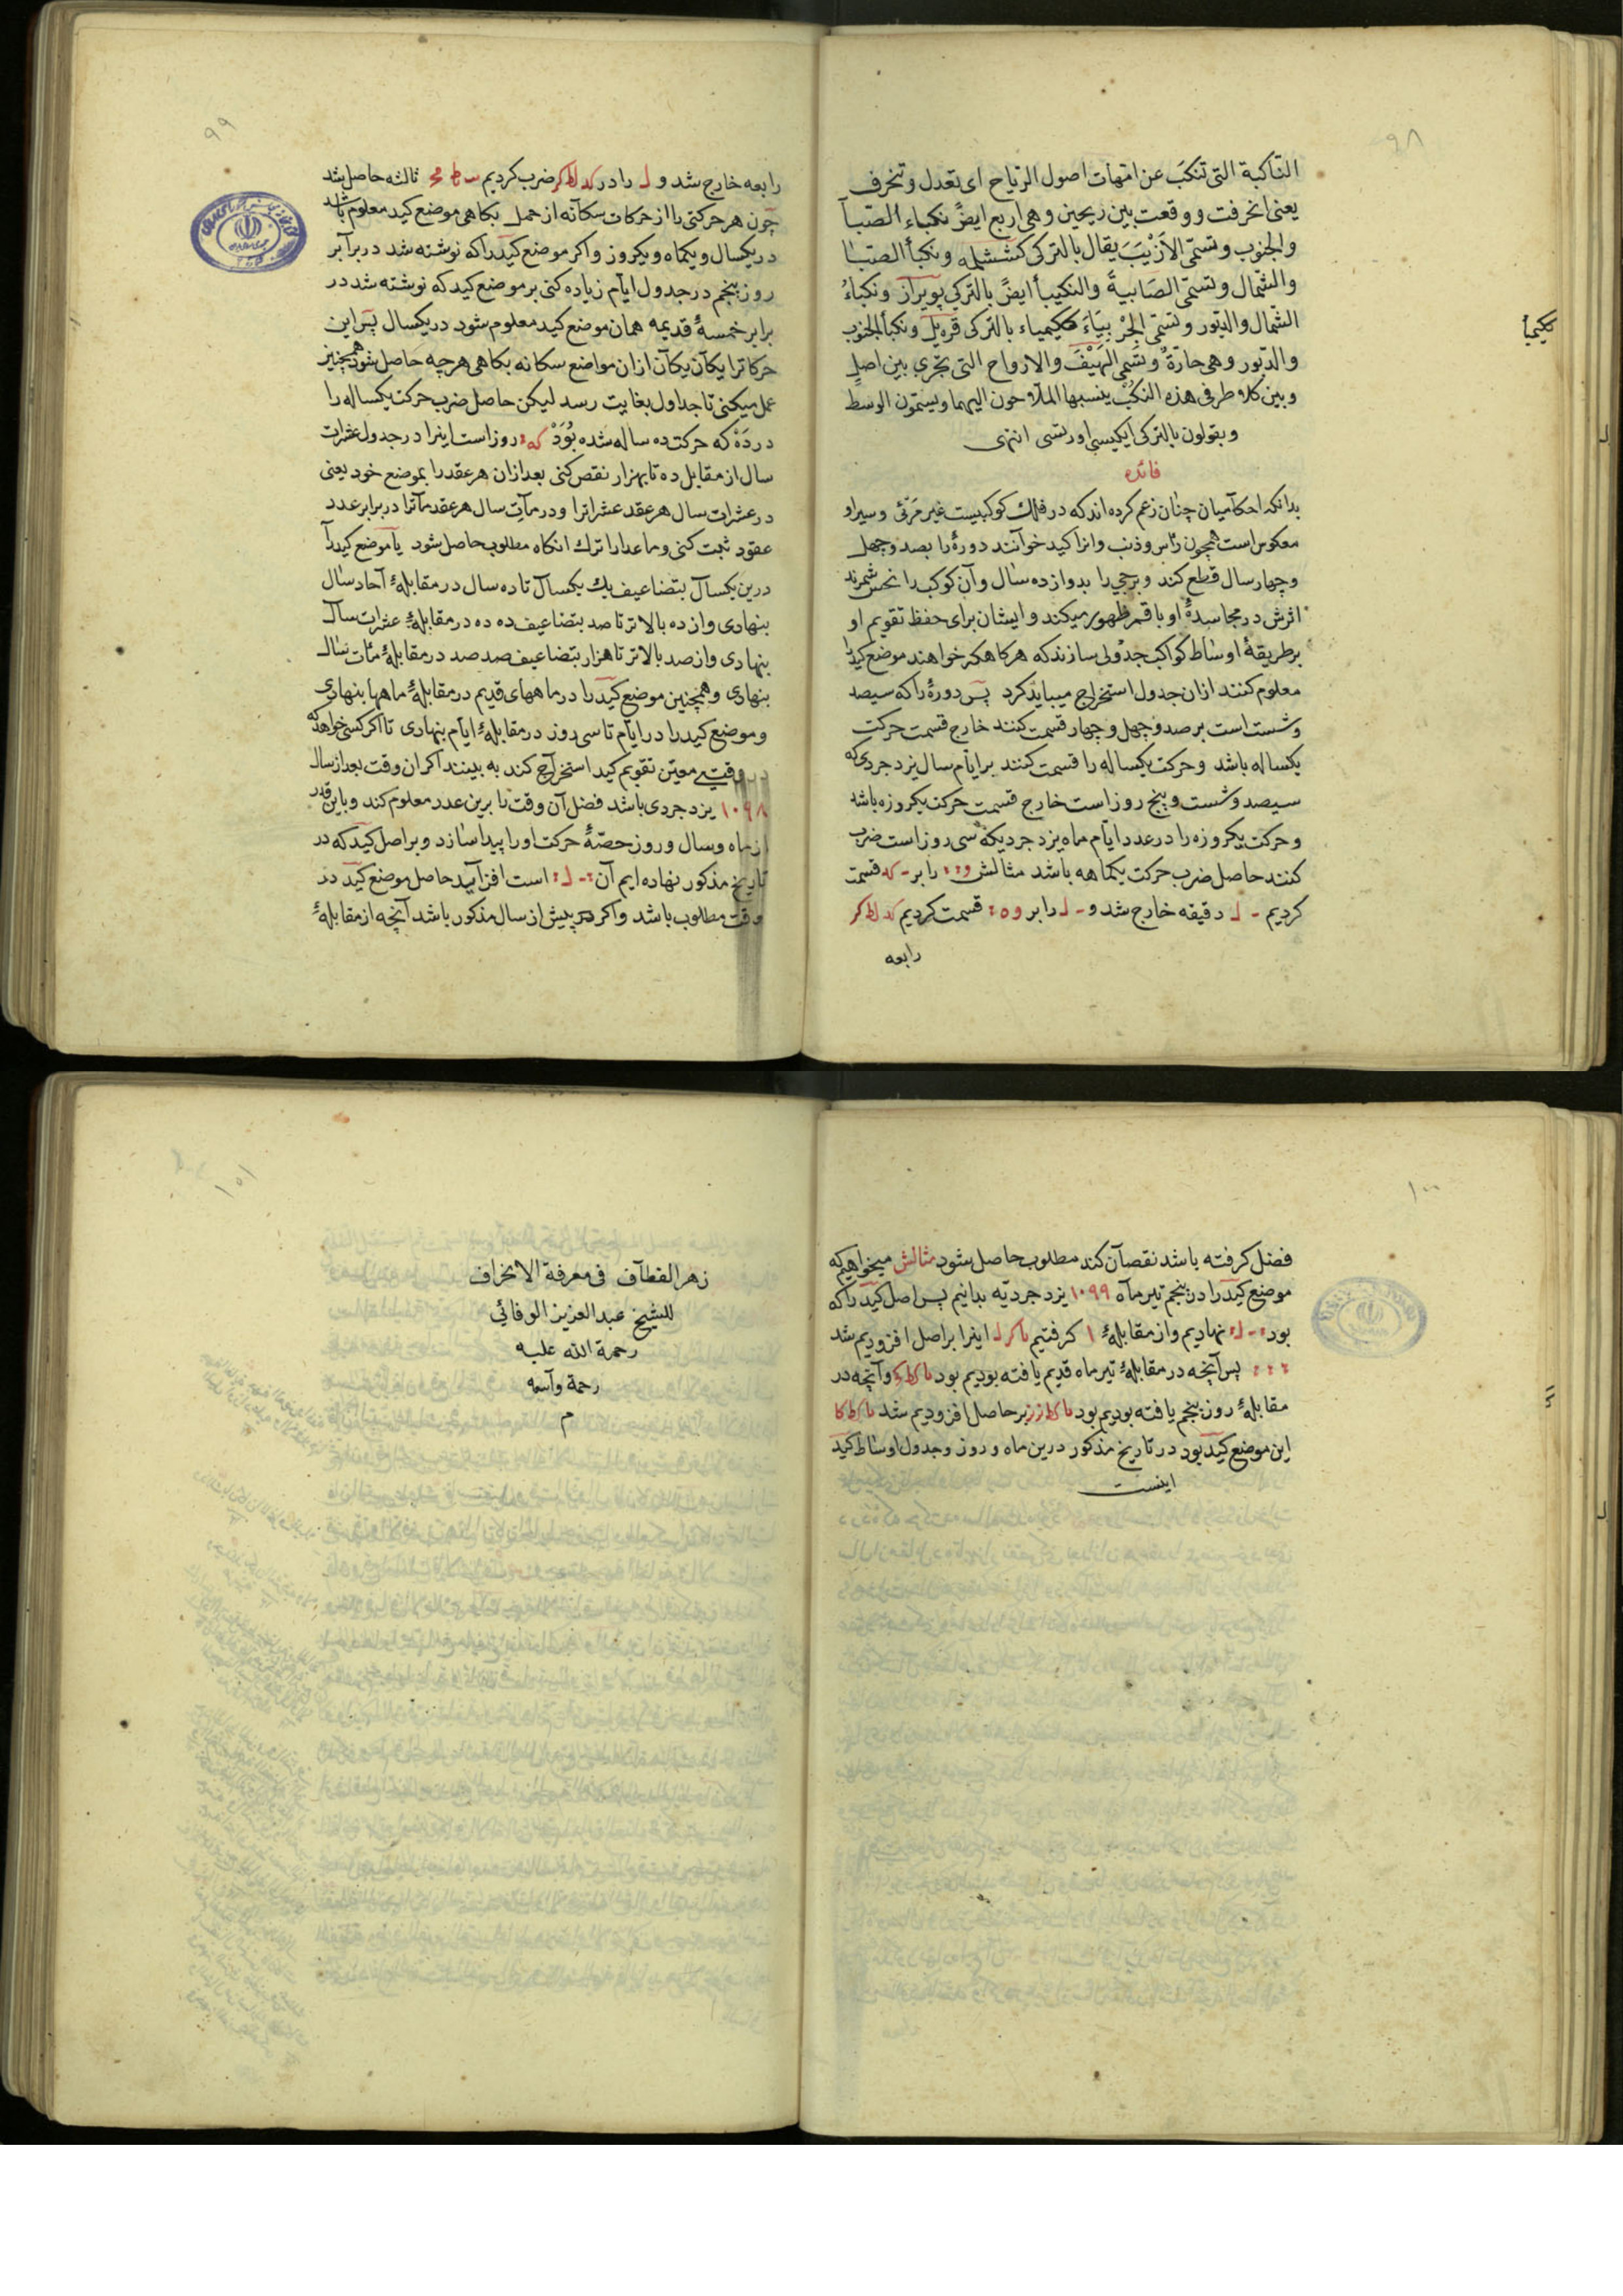 ٩٨
النّاكبة التى تنكبَ عن امّهات اصول الرّياح اى تعدل وتنحرف
يعنى انحرفت ووقعت بين ريحين وهى اربع ايضً نكباء الصّبا
والجنوب وتسمّى الاَزْيَبَ يقال بالتركى كششلمه ونكبأ الصّبا
والشّمال وتسمّى الصَابيةً والنكيبأ ايضً بالتركى بويراز ونكباءُ
الشمال والدبّور وتسمّى الجرْ بيَاءَ بالتركى قره يل ونكبأ الجنوب
نكيبأ
والدبّور وهى حارّةٌ وتسَمى الهَيْفَ والارواح التى تجرى بين اصلٍ
وبين كلا طرفى هذه النكُبْ ينسبها الملّاحون اليهما ويسمّون الوسط
ويقولون بالتركى ايكيسى اورتسى انتهى
فائده
بدانكه احكاميان چنان زعم كرده اند كه در فلك كوكبيست غير مَرئى وسير او
معكوس است همچون رأس وذنب وانرا كيد خوانند دورۀ را بصد وچهل
وچهار سال قطع كند وبرجى را بدوازده سال وآن كوكب را نحس شمرند
اثرش در مجاسدۀ او با قمر ظهور ميكند وايشان براى حفظ تقويم او
بر طريقۀ اوساط كواكب جدولى سازند كه هر كاه كه خواهند موضع كيد را
معلوم كنند ازان جدول استخراج ميبايد كرد پس دورۀ را كه سيصد
وشست است بر صد وچهل وچهار قسمت كنند خارج قسمت حركت
يكساله باشد وحركت يكساله را قسمت كنند بر ايّام سال يزدجردى كه
سيصد وشست وپنج روز است خارج قسمت حركت يكروزه باشد
وحركت يكروزه را در عدد ايّام ماه يزدجرديكه سى روز است ضرب
كنند حاصل ضرب حركت يكماهه باشد مثالش را بر قسمت
كرديم دقيقه خارج شد و را بر قسمت كرديم كد لط كر
رابعه
٩٩
رابعه خارج شد و را در كد لط كر ضرب كرديم ثالثه حاصل شد
چون هر حركتى را از حركات سكانه از حمل بكاهى موضع كيد معلوم باشد
در يكسال ويكماه ويكروز واكر موضع كيد را كه نوشته شد در برابر
روز پنجم در جدول ايّام زياده كنى بر موضع كيد كه نوشته شد در
برابر خمسۀ قديمه همان موضع كيد معلوم شود در يكسال پس اين
حركاترا يكان يكان ازان مواضع سكانه بكاهى هر چه حاصل شود همچنين
عمل ميكنى تا جداول بغايت رسد ليكن حاصل ضرب حركت يكساله را
در دَهْ كه حركت ده ساله شده بُوَدْ روز است اينرا در جدول عشرات
سال از مقابل ده تا بهزار نقص كنى بعد ازان هر عقد را بموضع خود يعنى
در عشرات سال هر عقد عشراترا ودر مآت سال هر عقد مآترا در برابر عدد
عقود ثبت كنى وماعدارا ترك انكاه مطلوب حاصل شود يا موضع كيد را
درين يكسال بتضاعيف يك يكسال تا ده سال در مقابلۀ آحاد سال
بنهادى واز ده بالاتر تا صد بتضاعيف ده ده در مقابلۀ عشرات سال
بنهادى واز صد بالاتر تا هزار بتضاعيف صد صد در مقابلۀ مئات سال
بنهادى وهمچنين موضع كيد را در ماههاى قديم در مقابلۀ ماهها بنهادى
وموضع كيد را در ايّام تا سى روز در مقابلۀ ايّام بنهادى تا اكر كسى خواهد كه
در وقتى معيّن تقويم كيد استخراج كند به بينند اكر ان وقت بعد از سال
١٠٩٨ يزدجردى باشد فضل آن وقت را برين عدد معلوم كند وباين قدر
از ماه وسال وروز حصّۀ حركت او را پيدا سازد وبر اصل كيد كه در
تاريخ مذكور نهاده ايم آن است افزايد حاصل موضع كيد در
وقت مطلوب باشد واكر پيش از سال مذكور باشد آنچه از مقابلۀ
١٠٠
فضل كرفته باشد نقصان كند مطلوب حاصل شود مثالش ميخواهيم كه
موضع كيد را در پنجم تير ماه ١٠٩٩ يزدجرديّه بدانيم پس اصل كيد را كه
بود نهاديم واز مقابلۀ ١ كرفتيم اينرا بر اصل افزوديم شد
پس آنچه در مقابلۀ تير ماه قديم يافته بوديم بود وآنچه در
مقابلۀ روز پنجم يافته بوديم بود بر حاصل افزوديم شد
اين موضع كيد بود در تاريخ مذكور درين ماه وروز وجدول اوساط كيد
اينست
١٠١
زهر القطآف فى معرفة الانحراف
للشيخ عبد العزيز الوفائى
رحمة الله عليه
رحمة واسعه
م